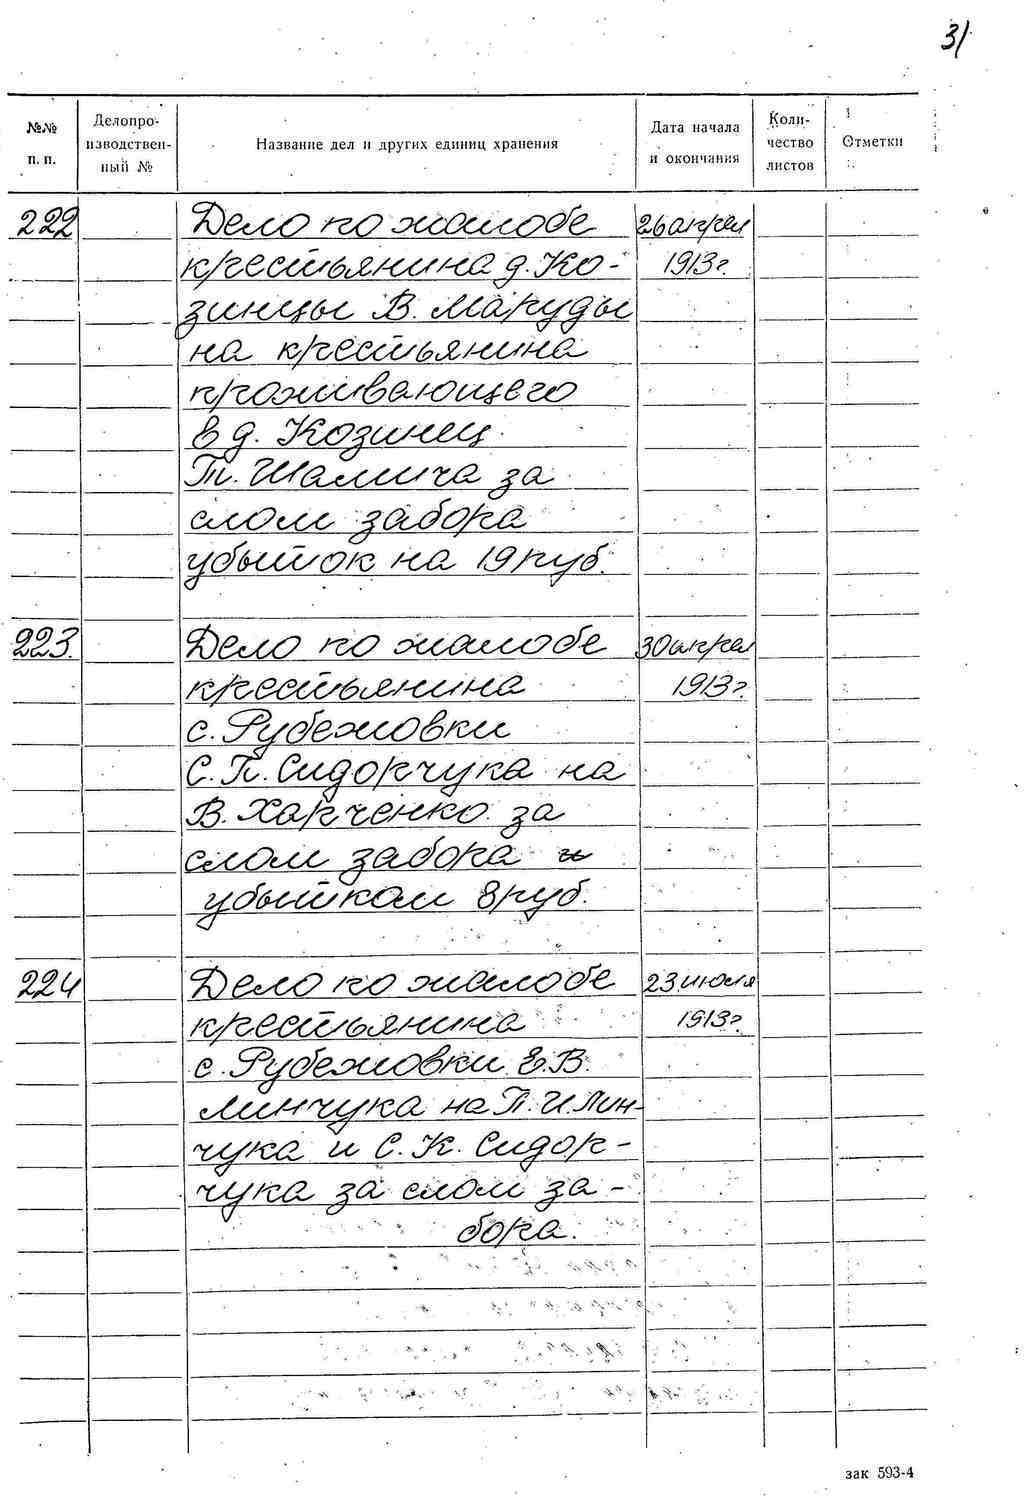 31
№№ п. п.
Делопро-
изводствен-
ный №
Название дел и других единиц хранения
Дата начала
и окончания
Коли-
чество
листов
Отметки
222 Дело по жалобе 26 апрел
крестьянина д. Ко- 1913г.
зинцы В. Маруды
на крестьянина
проживающего
в д. Козинец
Т. Шамича за
слом забора
убыток на 19 руб.
223. Дело по жалобе 30 апрел
крестьянина 1913г.
с. Рубежовки
С. П. Сидорчука на
В. Харченко за
слом забора и
убытком 8 руб.
224 Дело по жалобе 23 июля
крестьянина 1913г.
с. Рубежовки Е. В.
Линчука на П. И. Лин-
чука и С. К. Сидор-
чука за слом за-
бора.
зак 593-4